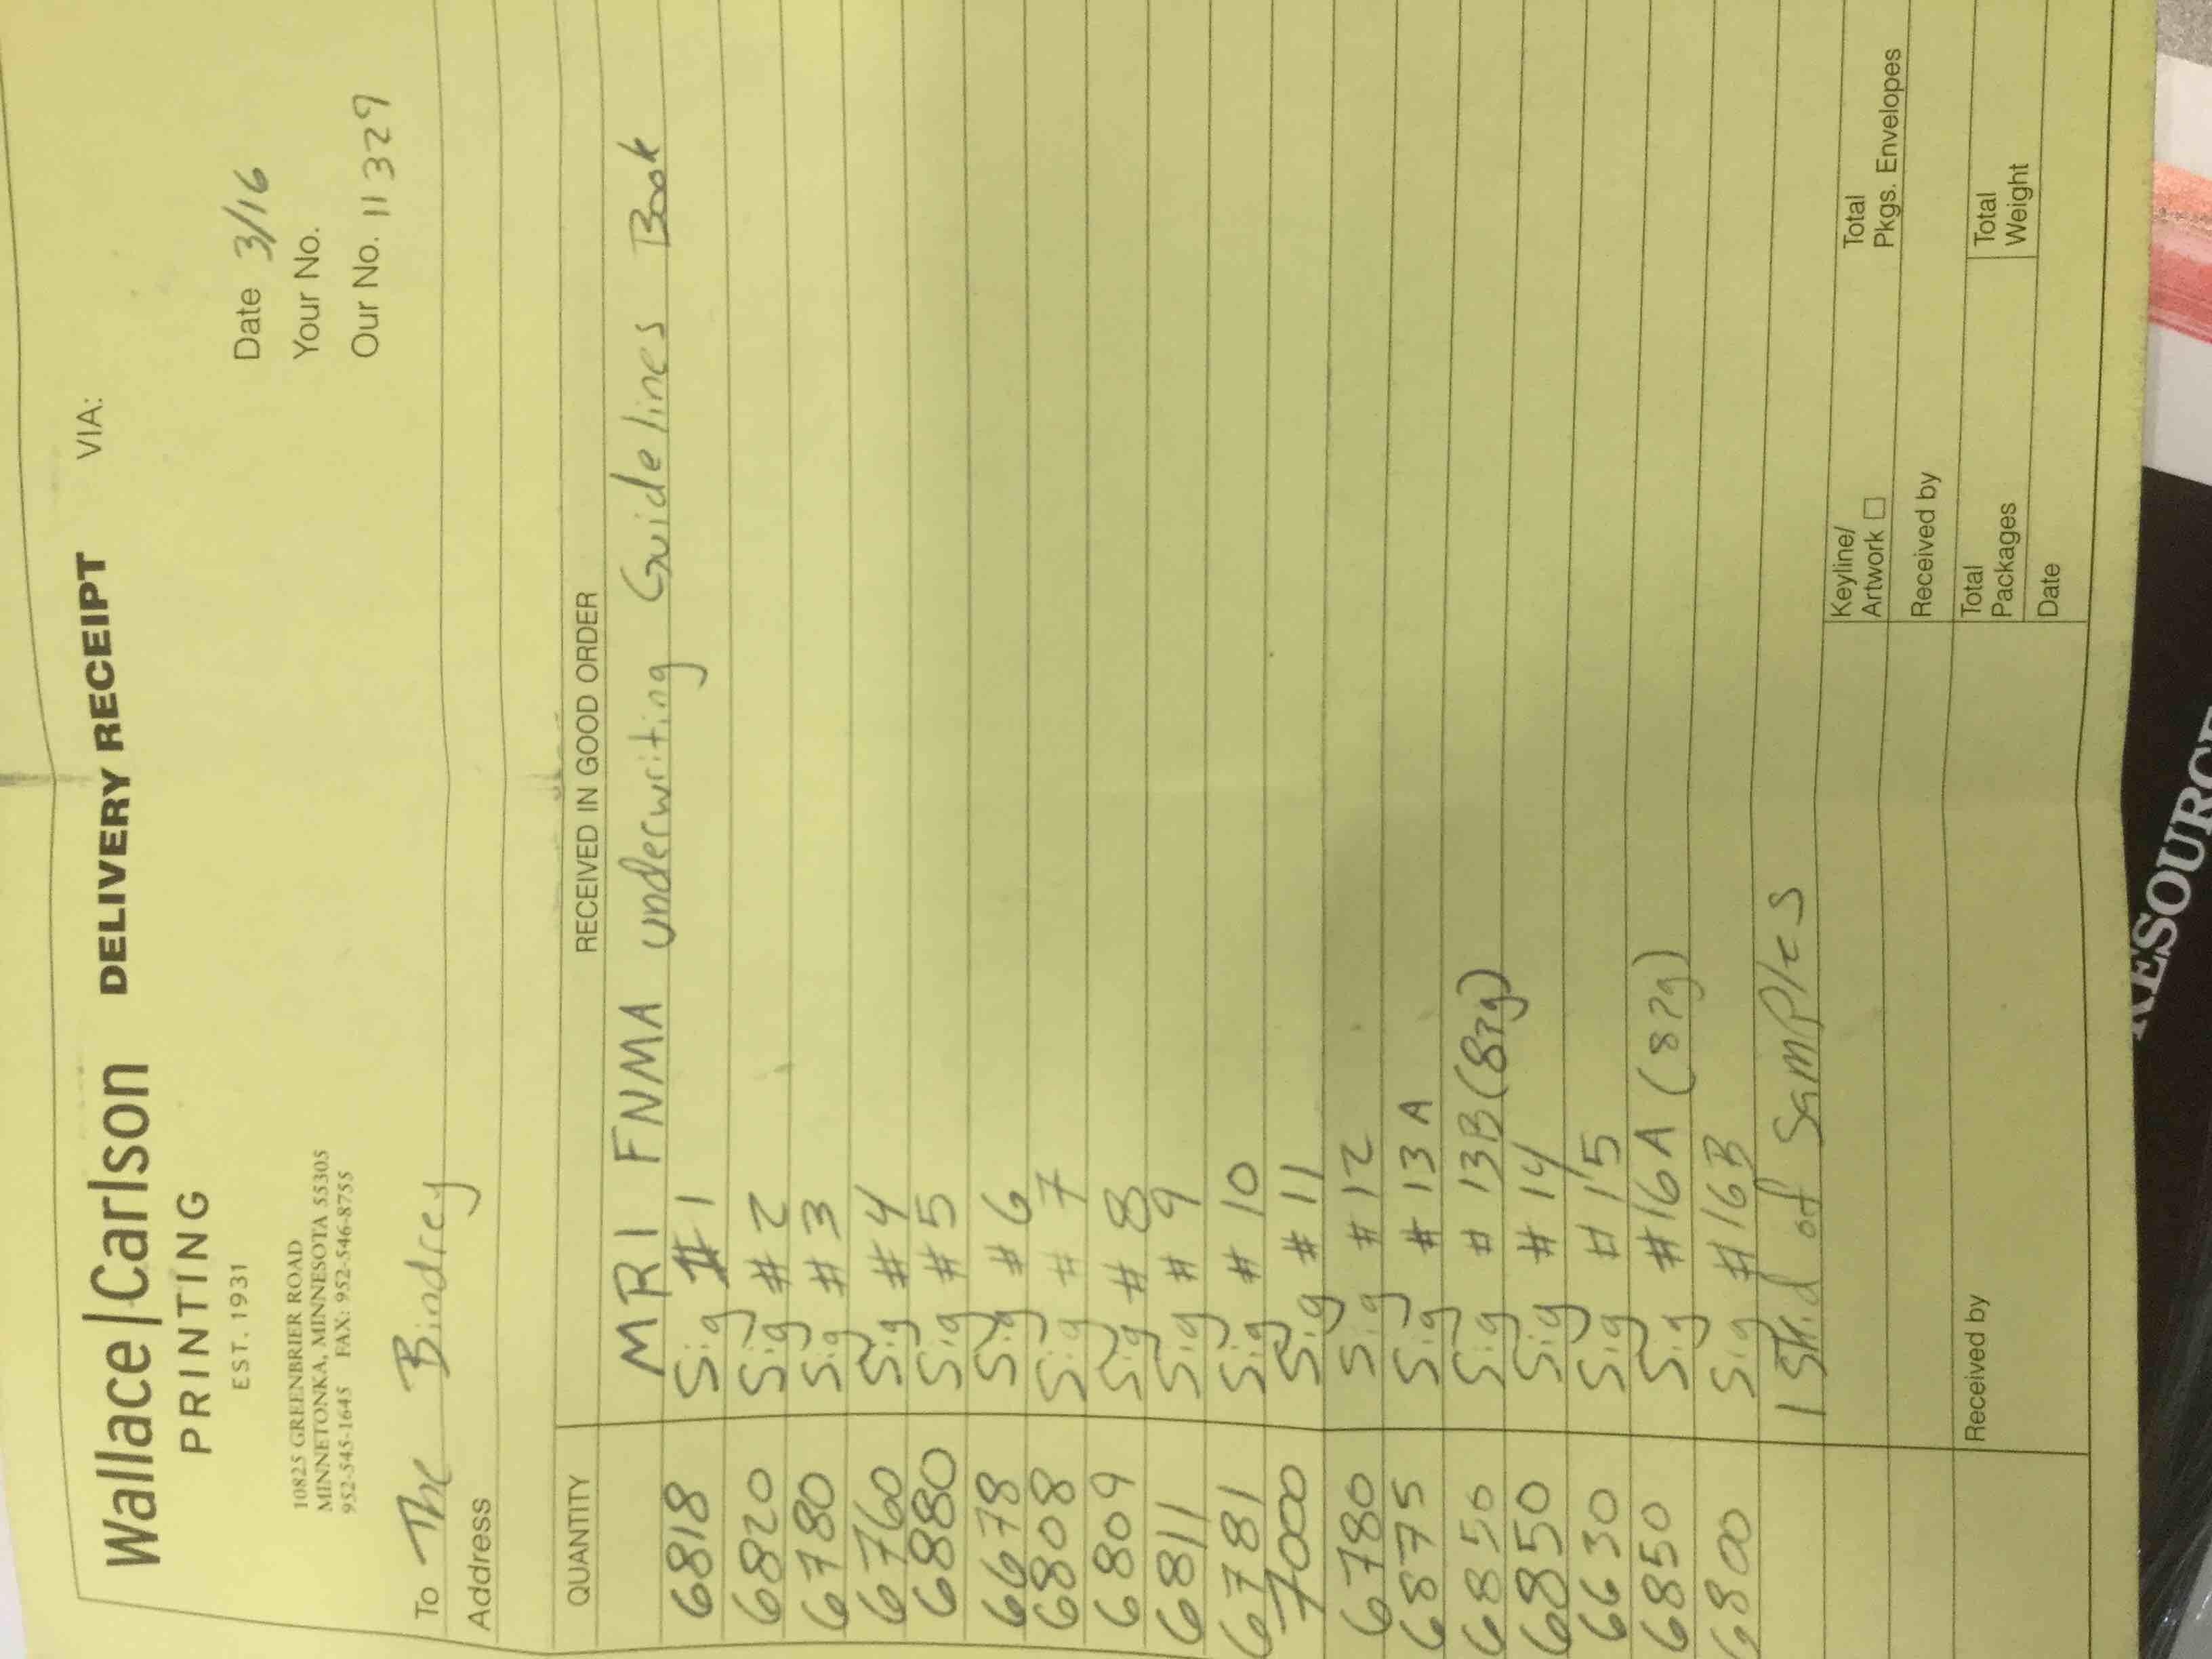 Wallace|Carlson DELIVERY RECEIPT VIA:
PRINTING
EST. 1931
Date 3/16
10825 GREENBRIER ROAD
MINNETONKA, MINNESOTA 55305
952-545-1645 FAX: 952-546-8755
Your No.
Our No. 11329
To The Bindrey
Address
QUANTITY RECEIVED IN GOOD ORDER
MRI FNMA underwriting Guidelines Book
6818 Sig #1
6820 Sig #2
6780 Sig #3
6760 Sig #4
6880 Sig #5
6678 Sig #6
6808 Sig #7
6809 Sig #8
6811 Sig #9
6781 Sig #10
7000 Sig #11
6780 Sig #12
6875 Sig #13A
6850 Sig #13B (8pg)
6850 Sig #14
6630 Sig #15
6850 Sig #16A (8pg)
6800 Sig #16B
1 Skid of Samples
Keyline/
Artwork □
Total
Pkgs. Envelopes
Received by
Received by
Total
Packages
Total
Weight
Date
RESOURCE